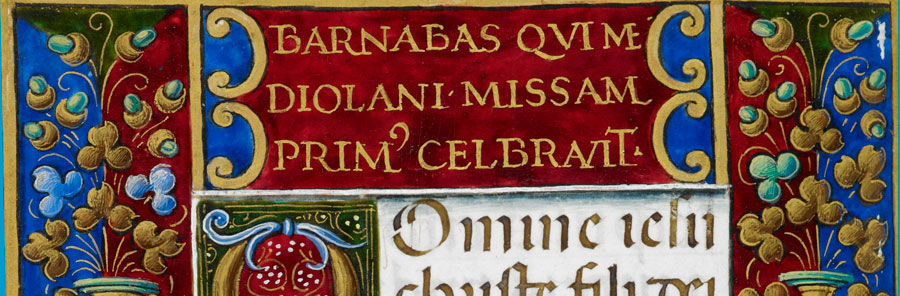 BARNABAS QVI ME
DIOLANI·MISSAM
PRIMꝰ CELBRAVIT.
Domine iesu
christe fili dei